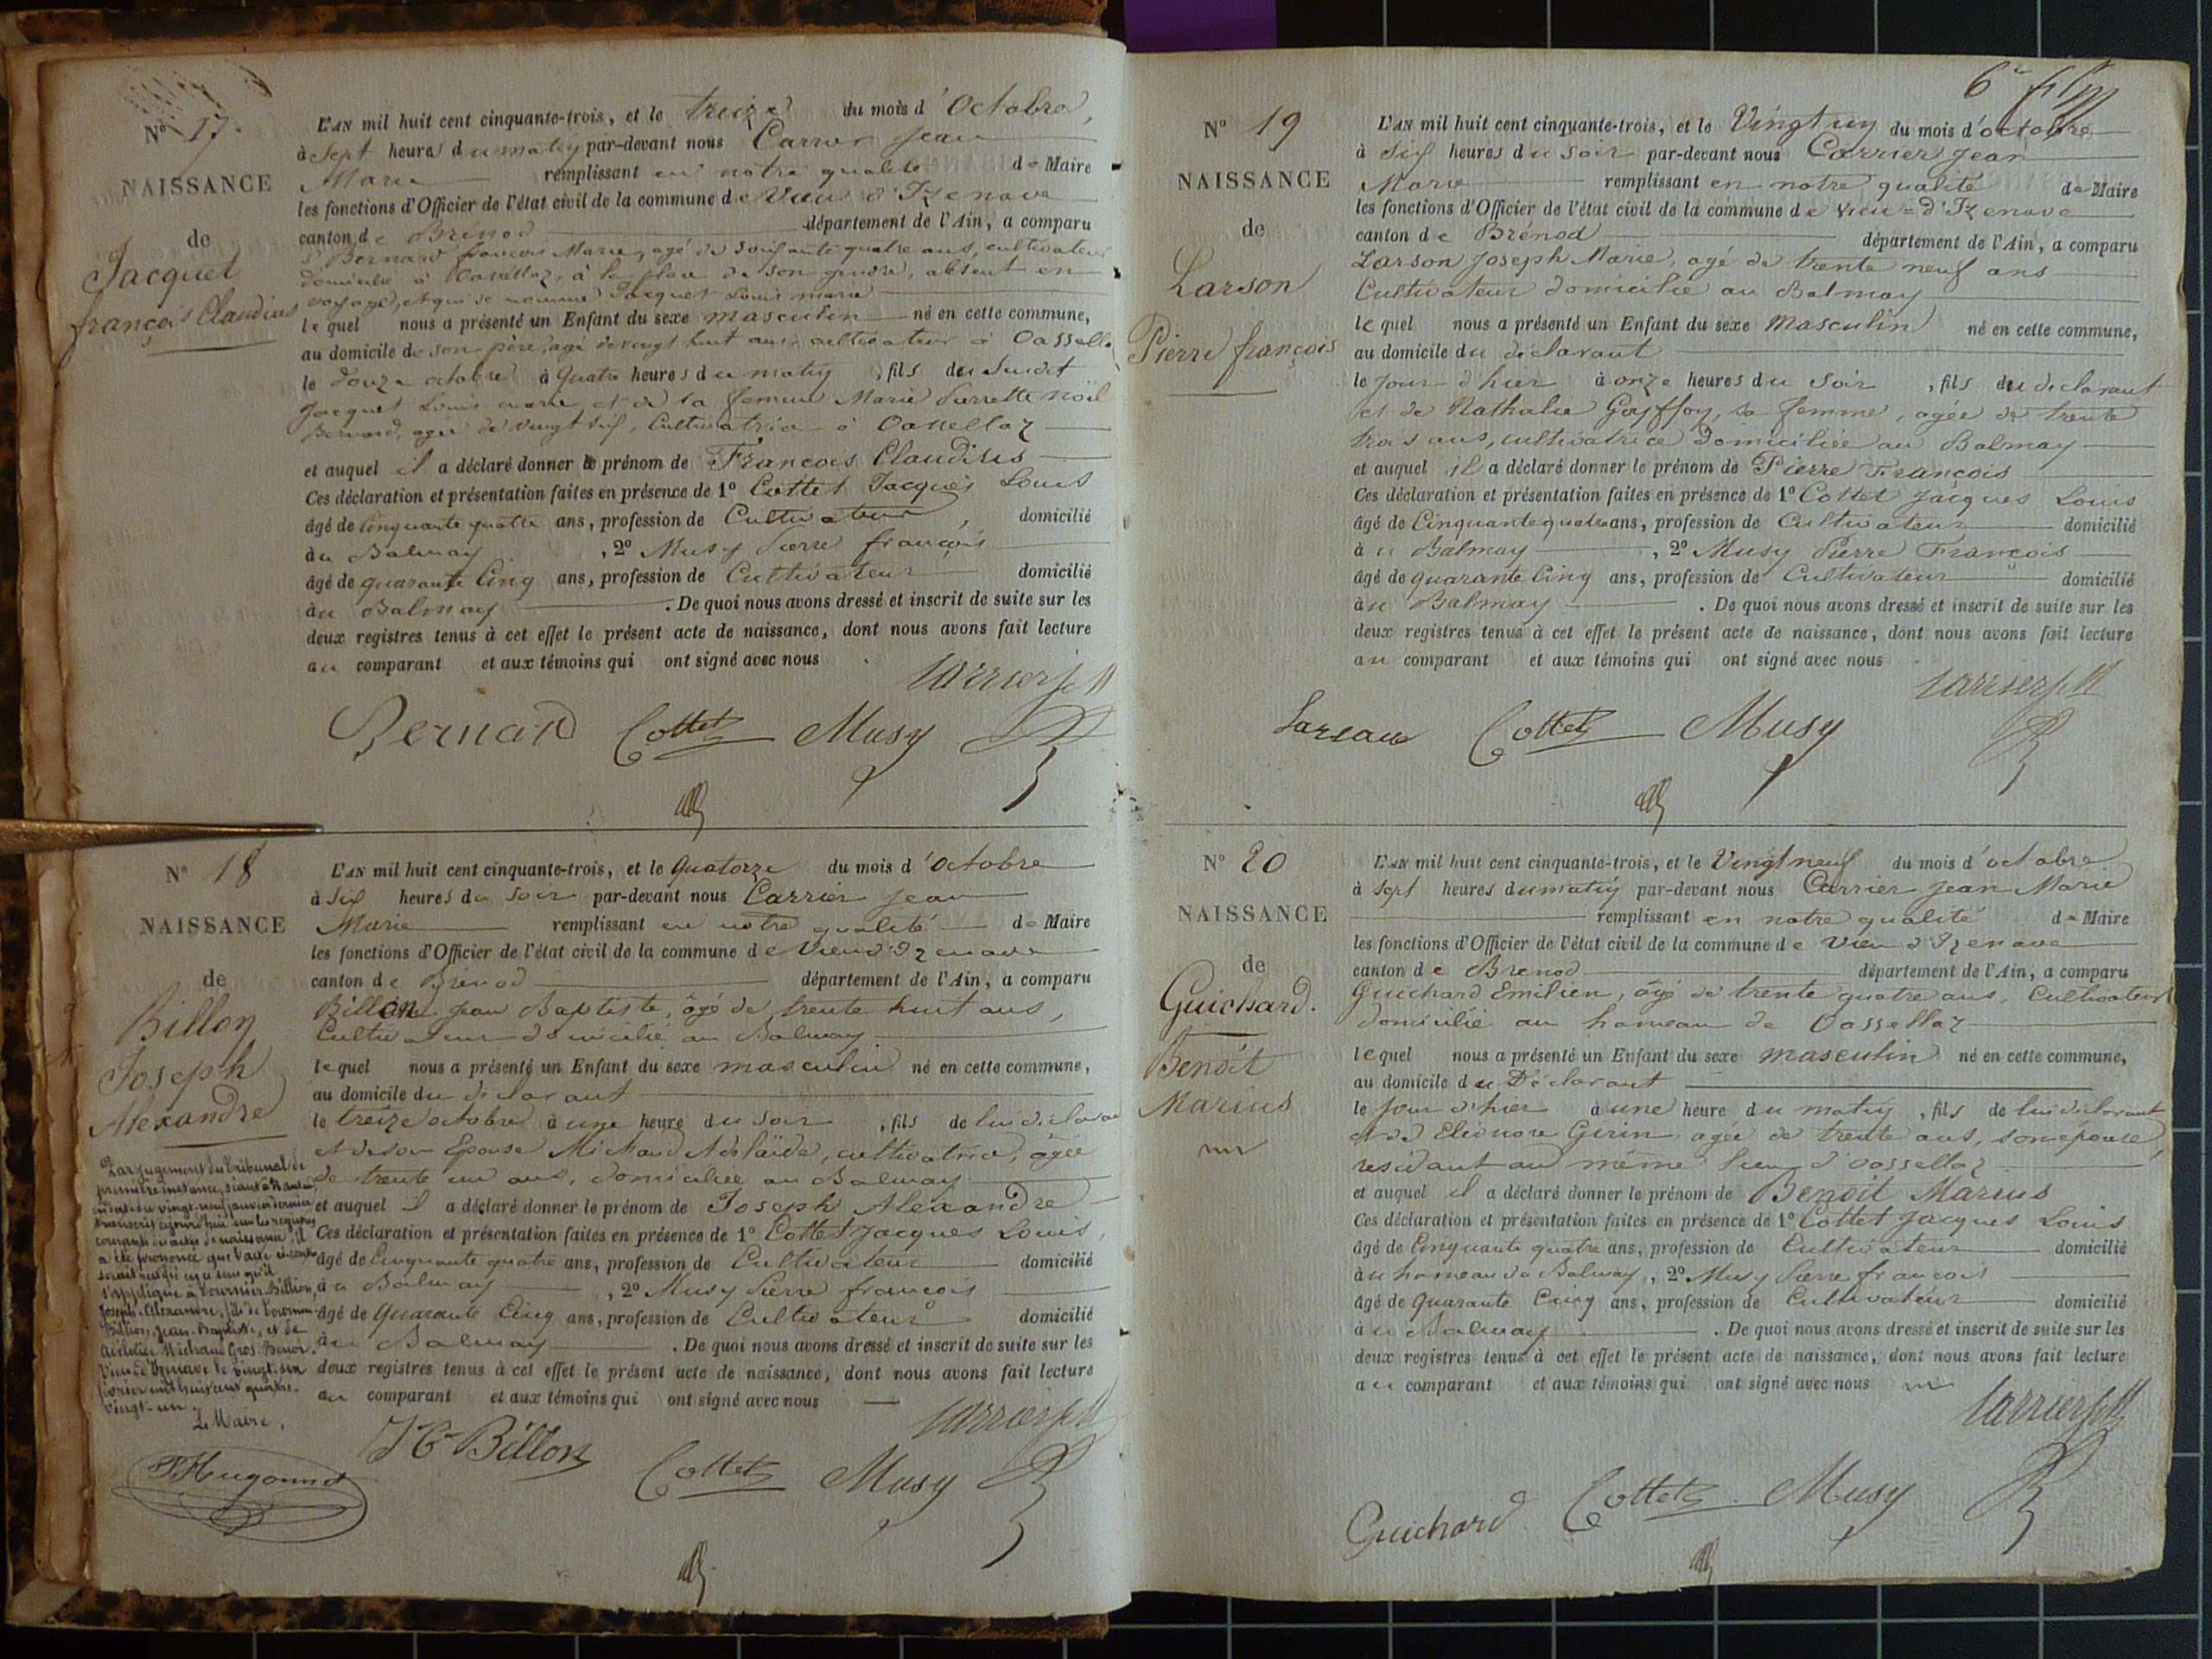 N° 17.
NAISSANCE
de
Jacquet
françois Claudius
L'AN mil huit cent cinquante-trois, et le treize du mois d'Octobre,
à Sept heures du matin par-devant nous Carrier Jean
Marie remplissant en notre qualité de Maire
les fonctions d'Officier de l'état civil de la commune de Vieu d'Izenave
canton de Brenod département de l'Ain, a comparu
Bernard françois Marie, agé de soixante quatre ans, cultivateur
domicilié à Oassellaz, à la place de son gendre, absent en
voyage, et qui se nomme Jacquet Louis marie
lequel nous a présenté un Enfant du sexe masculin né en cette commune,
au domicile de son père, agé de vingt huit ans cultivateur à Oassella
le douze octobre à Quatre heures du matin, fils du Susdit
Jacquet Louis marie et de la femme Marie Pierrette Noël
Bernard, agée de vingt six, Cultivatrice à Oassellaz
et auquel il a déclaré donner le prénom de François Claudius
Ces déclaration et présentation faites en présence de 1° Cottet Jacques Louis
âgé de Cinquante quatre ans, profession de Cultivateur, domicilié
au Balmay, 2° Musy Pierre françois
âgé de quarante Cinq ans, profession de Cultivateur domicilié
au Balmay. De quoi nous avons dressé et inscrit de suite sur les
deux registres tenus à cet effet le présent acte de naissance, dont nous avons fait lecture
au comparant et aux témoins qui ont signé avec nous
Carrier JM
Bernard Cottet Musy
N° 18
NAISSANCE
de
Billon
Joseph
Alexandre
Par jugement du tribunal de
première instance, séant à Nantua,
en date du vingt-neuf janvier dernier
transcrit aujourd'hui sur les registres
courants des actes de naissance, il
a été prononcé que l'acte ci-contre
serait rectifié en ce sens qu'il
s'applique à Tournier-Billion,
Joseph-Alexandre, fils de Tournier-
Billion, Jean-Baptiste, et de
Adélaïde Michaud Gros-Benoit.
Vieu-d'Izenave le vingt-six
février mil huit cent quatre-
vingt-un.
Le Maire,
Hugonnet
L'AN mil huit cent cinquante-trois, et le Quatorze du mois d'Octobre
à Six heures du Soir par-devant nous Carrier Jean
Marie remplissant en notre qualité de Maire
les fonctions d'Officier de l'état civil de la commune de Vieu d'Izenave
canton de Brénod département de l'Ain, a comparu
Billon Jean Baptiste, âgé de trente huit ans,
Cultivateur domicilié au Balmay
lequel nous a présenté un Enfant du sexe masculin né en cette commune,
au domicile du déclarant
le treize octobre à une heure du soir, fils de lui déclarant
et de son Epouse Michaud Adélaïde, cultivatrice, âgée
de trente un ans, domiciliée au Balmay
et auquel il a déclaré donner le prénom de Joseph Alexandre
Ces déclaration et présentation faites en présence de 1° Cottet Jacques Louis,
âgé de Cinquante quatre ans, profession de Cultivateur domicilié
au Balmay, 2° Musy Pierre françois
âgé de Quarante Cinq ans, profession de Cultivateur domicilié
au Balmay. De quoi nous avons dressé et inscrit de suite sur les
deux registres tenus à cet effet le présent acte de naissance, dont nous avons fait lecture
au comparant et aux témoins qui ont signé avec nous
Carrier JM
JB Billon Cottet Musy
N° 19
NAISSANCE
de
Larson
Pierre françois
L'AN mil huit cent cinquante-trois, et le Vingt un du mois d'octobre
à Six heures du soir par-devant nous Carrier Jean
Marie remplissant en notre qualité de Maire
les fonctions d'Officier de l'état civil de la commune de Vieu-d'Izenave
canton de Brénod département de l'Ain, a comparu
Larson Joseph Marie, agé de trente neuf ans
Cultivateur domicilié au Balmay
lequel nous a présenté un Enfant du sexe Masculin né en cette commune,
au domicile du déclarant
le Jour d'hier à onze heures du soir, fils du déclarant
et de Nathalie Goyffon, sa femme, agée de trente
trois ans, cultivatrice domiciliée au Balmay
et auquel il a déclaré donner le prénom de Pierre François
Ces déclaration et présentation faites en présence de 1° Cottet Jacques Louis
âgé de Cinquante quatre ans, profession de Cultivateur domicilié
au Balmay, 2° Musy Pierre François
âgé de quarante Cinq ans, profession de Cultivateur domicilié
au Balmay. De quoi nous avons dressé et inscrit de suite sur les
deux registres tenus à cet effet le présent acte de naissance, dont nous avons fait lecture
au comparant et aux témoins qui ont signé avec nous
Carrier JM
Larson Cottet Musy
N° 20
NAISSANCE
de
Guichard.
Benoît
Marius
L'AN mil huit cent cinquante-trois, et le Vingt neuf du mois d'octobre
à sept heures du matin par-devant nous Carrier Jean Marie
remplissant en notre qualité de Maire
les fonctions d'Officier de l'état civil de la commune de Vieu d'Izenave
canton de Brenod département de l'Ain, a comparu
Guichard Emilien, âgé de trente quatre ans, Cultivateur
domicilié au hameau de Oassellaz
lequel nous a présenté un Enfant du sexe masculin né en cette commune,
au domicile du Déclarant
le Jour d'hier à une heure du matin, fils de lui déclarant
et de Eléonore Girin agée de trente ans, son épouse,
résidant au même lieu d'oassellaz
et auquel il a déclaré donner le prénom de Benoit Marius
Ces déclaration et présentation faites en présence de 1° Cottet Jacques Louis
âgé de Cinquante quatre ans, profession de Cultivateur domicilié
au hameau du Balmay, 2° Musy Pierre françois
âgé de Quarante Cinq ans, profession de Cultivateur domicilié
au Balmay. De quoi nous avons dressé et inscrit de suite sur les
deux registres tenus à cet effet le présent acte de naissance, dont nous avons fait lecture
au comparant et aux témoins qui ont signé avec nous
Carrier JM
Guichard Cottet Musy